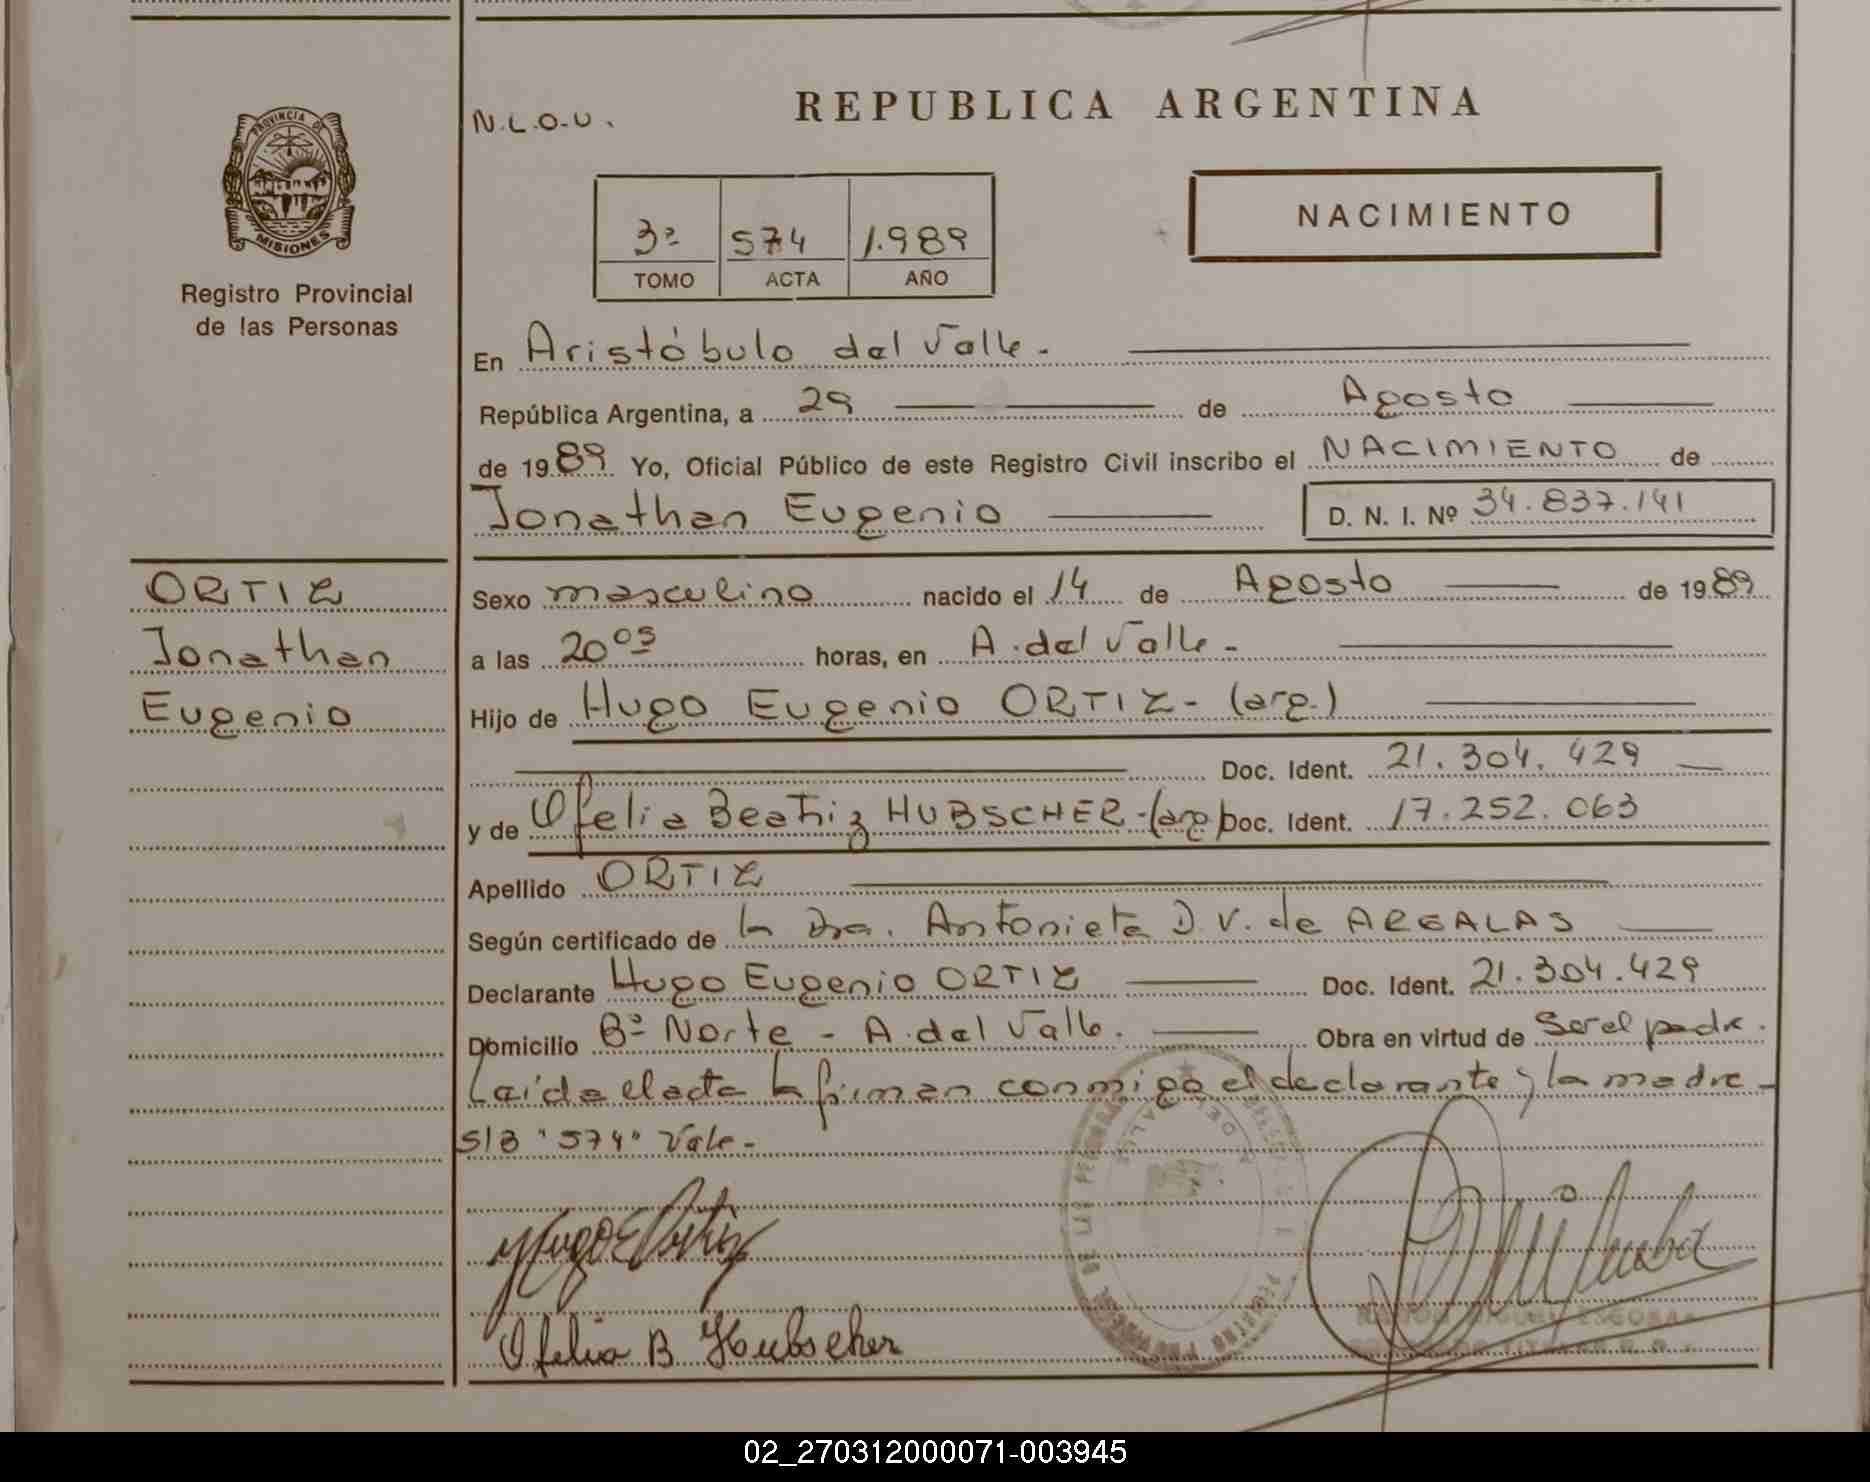 PROVINCIA DE
MISIONES
Registro Provincial
de las Personas
N.L.O.U.
REPUBLICA ARGENTINA
3º 574 1.989
TOMO ACTA AÑO
NACIMIENTO
En Aristóbulo del Valle.-
República Argentina, a 29 de Agosto
de 1989 Yo, Oficial Público de este Registro Civil inscribo el NACIMIENTO de
Jonathan Eugenio D. N. I. Nº 34.837.141
ORTIZ
Jonathan
Eugenio
Sexo masculino nacido el 14 de Agosto de 1989
a las 20 05 horas, en A. del Valle -
Hijo de Hugo Eugenio ORTIZ - (arg.)
Doc. Ident. 21.304.429
y de Ofelia Beatriz HUBSCHER - (arg) Doc. Ident. 17.252.063
Apellido ORTIZ
Según certificado de la Dra. Antonieta D.V. de ARGALAS
Declarante Hugo Eugenio ORTIZ Doc. Ident. 21.304.429
Domicilio Bº Norte - A. del Valle. Obra en virtud de Ser el padre.
Laída el acta la firman conmigo el declarante y la madre -
S/B "574" Vale.-
Hugo E Ortiz
Ofelia B Hubscher
MIGUEL ESCOBAR
02_270312000071-003945